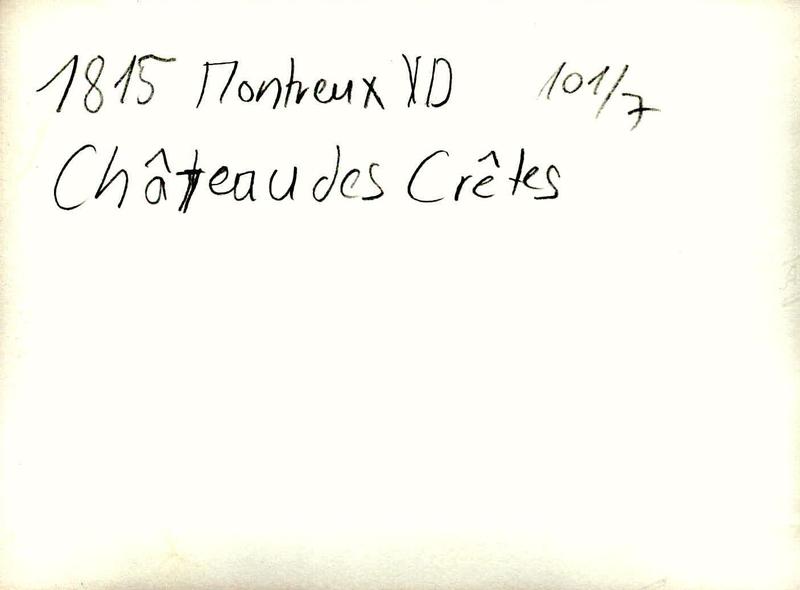 1815 Montreux VD 101/7
Château des Crêtes